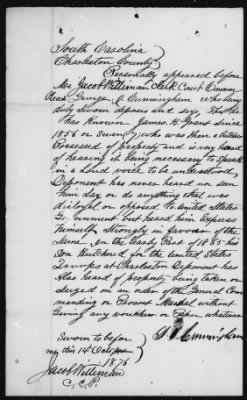 South Carolina
Charleston County
Personally appeared before
Me Jacob Williman Clerk Court Comm
Pleas George J. Cunningham who being
duly sworn deposes and says That he
has Known James B. Grant since
1856 or Seven who was then a butcher
Possessed of property and is very hard
of hearing it being necessary to Speak
in a loud voice to be understood,
Deponent has never heard nor seen
him Say or do anything that was
disloyal or opposed to United States
Government but heard him Express
Himself Strongly in favor of the
Same, In the Early Part of 1865 he
Butchered for the United States
Troops at Charleston Deponent has
Also heard of Property being taken or
Seized on an order of the General Com
manding or Provost Marshal without
Giving any voucher or Paper whatever
Sworn to before
me this 14 day
1876
Jacob Williman
C.C.P.
Cunningham